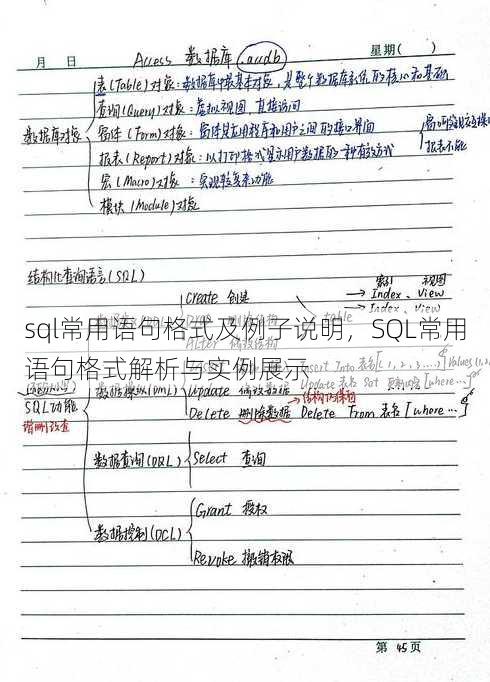 月 日 Access 数据库 .accdb 星期( )
表(Table)对象：数据库中最基本对象，是整个数据库系统的核心和基础
查询(Query)对象：虚拟视图，直接访问
数据库对象 窗体(Form)对象：窗体是应用程序和用户之间的接口界面
报表(Report)对象：以打印格式显示用户数据的一种有效方式
报表不能
宏(Macro)对象：实现较复杂功能
模块(Module)对象
结构化查询语言(SQL)
索引 视图
Create 创建 → Index、View
→ Index、View
Alter table
sql常用语句格式及例子说明，SQL常用
语句格式解析与实例展示
Insert Into 表名[1,2,3...] Values
数据操纵(DML) Update 修改数据 Update 表名 Set [where...]
SQL功能 Delete 删除数据 Delete From 表名[where...]
增删改查
数据查询(DQL) Select 查询
Grant 授权
数据控制(DCL)
Revoke 撤销权限
第 45 页